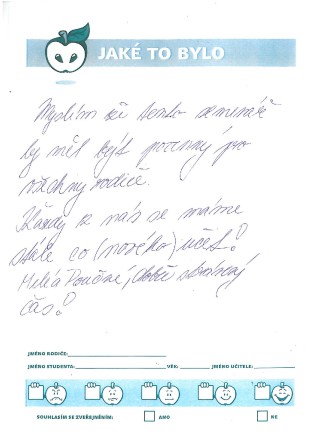 JAKÉ TO BYLO
Myslím že tento seminář
by měl být povinný pro
všechny rodiče.
Každý z nás se máme
stále co (nového) učit!
Poučné, dobře strávený
čas!
JMÉNO RODIČE:
JMÉNO STUDENTA: VĚK: JMÉNO UČITELE:
SOUHLASÍM SE ZVEŘEJNĚNÍM: ANO NE